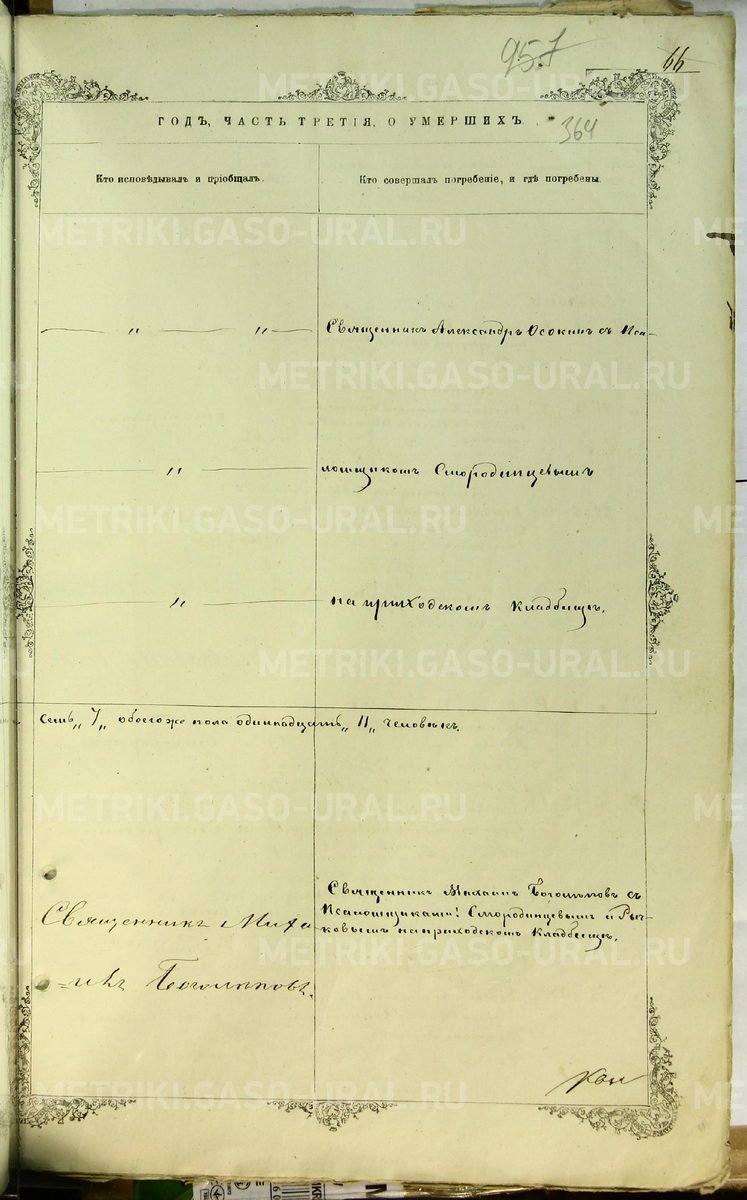 957
66
ГОДЪ, ЧАСТЬ ТРЕТІЯ, О УМЕРШИХЪ.
364
Кто исповѣдывалъ и пріобщалъ.
Кто совершалъ погребеніе, и гдѣ погребены.
METRIKI.GASO-URAL.RU
— " — " —
Священникъ Александръ Осокинъ съ Пса-
— " —
ломщикомъ Смородинцевымъ
— " —
на приходскомъ кладбищѣ.
семь „7„ обоегоже пола одинадцать „11„ человѣкъ.
Священникъ Миха-
=илъ Боголѣповъ.
Священникъ Михаилъ Боголѣповъ съ
Псаломщиками: Смородинцевымъ и Рыч-
ковымъ на приходскомъ кладбищѣ.